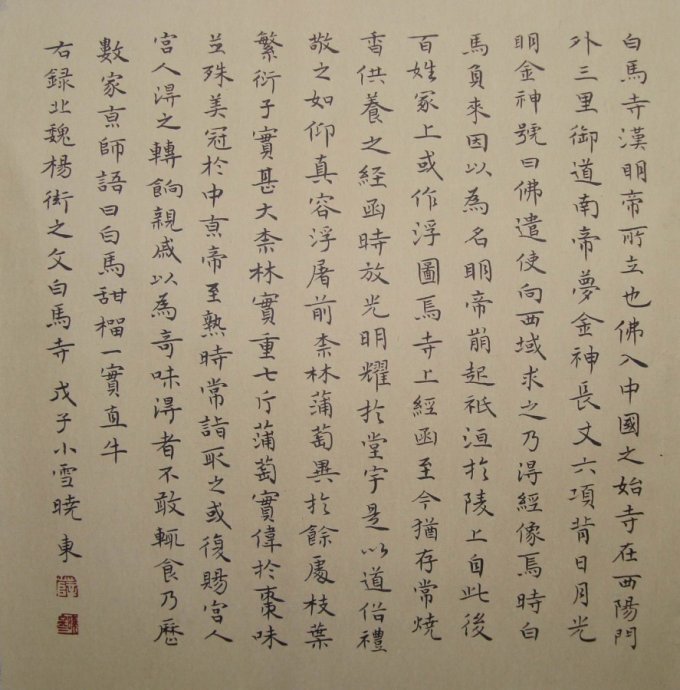 白馬寺漢明帝所立也佛入中國之始寺在西陽門
外三里御道南帝夢金神長丈六項背日月光
明金神號曰佛遣使向西域求之乃得經像焉時白
馬負來因以為名明帝崩起祇洹於陵上自此後
百姓冢上或作浮圖焉寺上經函至今猶存常燒
香供養之經函時放光明耀於堂宇是以道俗禮
敬之如仰真容浮屠前柰林蒲萄異於餘處枝葉
繁衍子實甚大柰林實重七斤蒲萄實偉於棗味
並殊美冠於中京帝至熟時常詣取之或復賜宮人
宮人得之轉餉親戚以為奇味得者不敢輒食乃歷
數家京師語曰白馬甜榴一實直牛
右錄北魏楊衒之文白馬寺 戊子小雪曉東